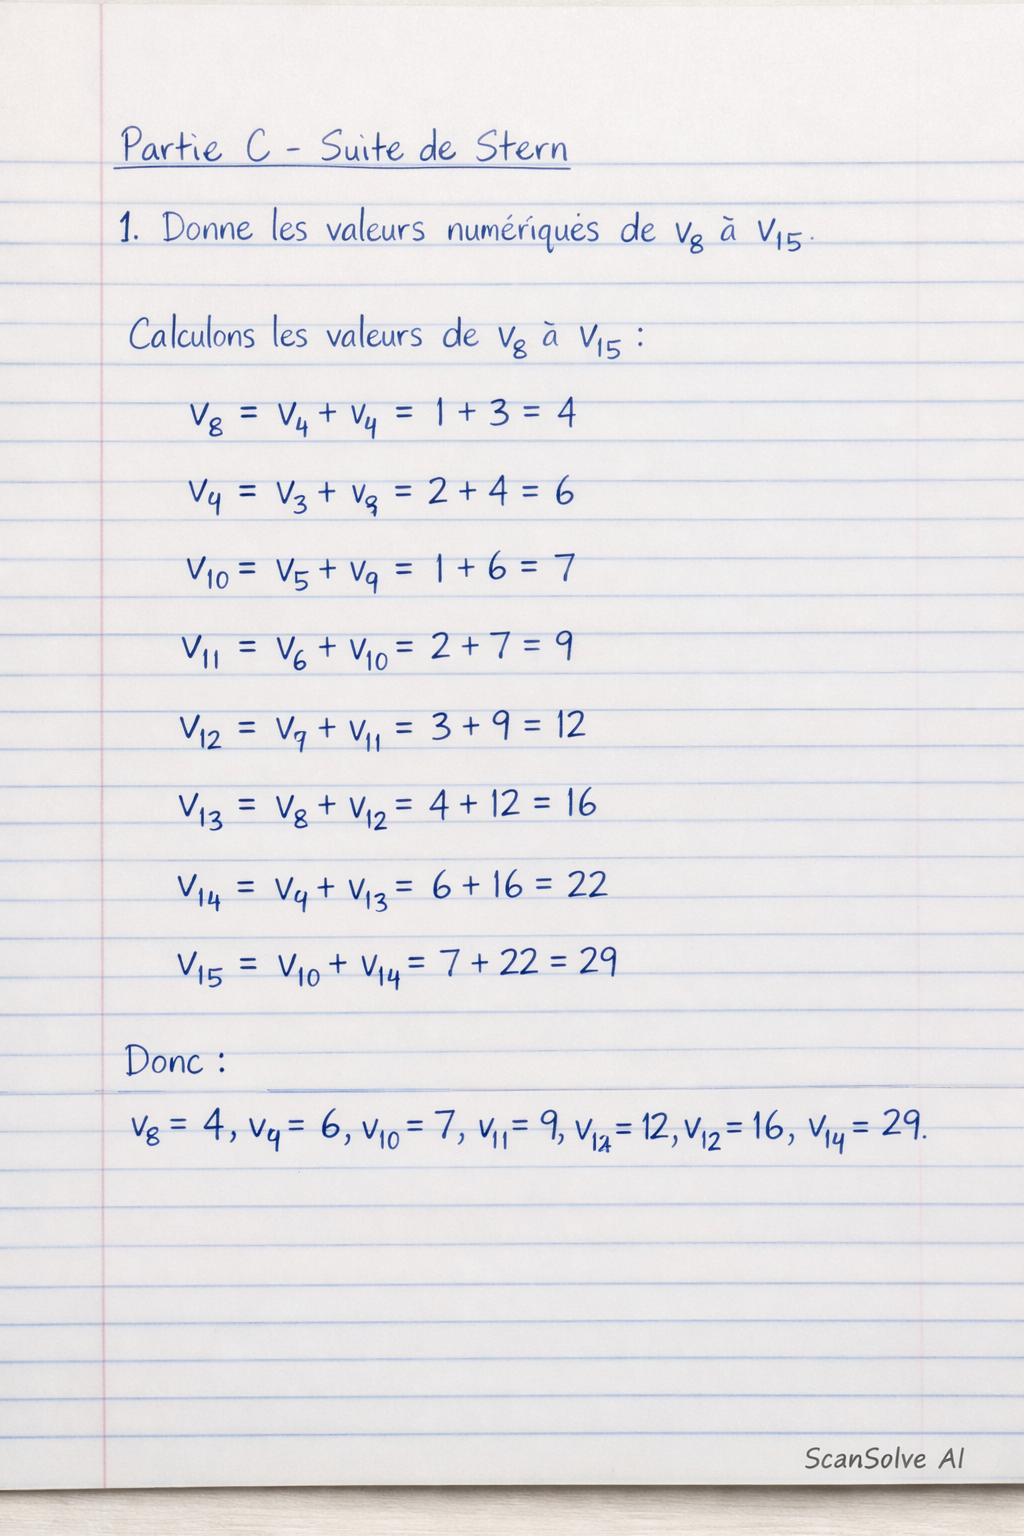 Partie C - Suite de Stern
1. Donne les valeurs numériques de v₈ à v₁₅.
Calculons les valeurs de v₈ à v₁₅ :
v₈ = v₄ + v₄ = 1 + 3 = 4
v₉ = v₃ + v₈ = 2 + 4 = 6
v₁₀ = v₅ + v₉ = 1 + 6 = 7
v₁₁ = v₆ + v₁₀ = 2 + 7 = 9
v₁₂ = v₉ + v₁₁ = 3 + 9 = 12
v₁₃ = v₈ + v₁₂ = 4 + 12 = 16
v₁₄ = v₉ + v₁₃ = 6 + 16 = 22
v₁₅ = v₁₀ + v₁₄ = 7 + 22 = 29
Donc :
v₈ = 4, v₉ = 6, v₁₀ = 7, v₁₁ = 9, v₁₂ = 12, v₁₂ = 16, v₁₄ = 29.
ScanSolve AI